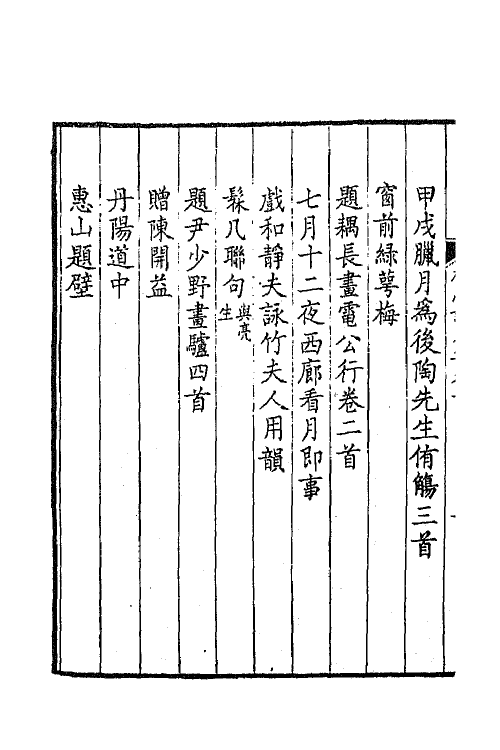 甲戌臘月爲後陶先生侑觴三首
窗前綠萼梅
題耦長畫電公行卷二首
七月十二夜西廊看月即事
戲和靜夫詠竹夫人用韻
髹几聯句與亮生
題尹少野畫驢四首
贈陳開益
丹陽道中
惠山題壁